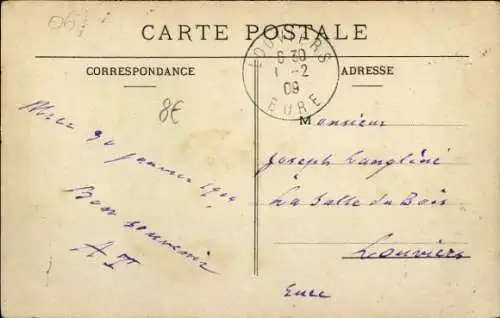 CARTE POSTALE
CORRESPONDANCE
ADRESSE
LOUVIERS
6 30
1 -2
09
EURE
8€
janvier 1909
Bon souvenir
A T
Monsieur
Joseph
La Salle du Bois
Louviers
Eure